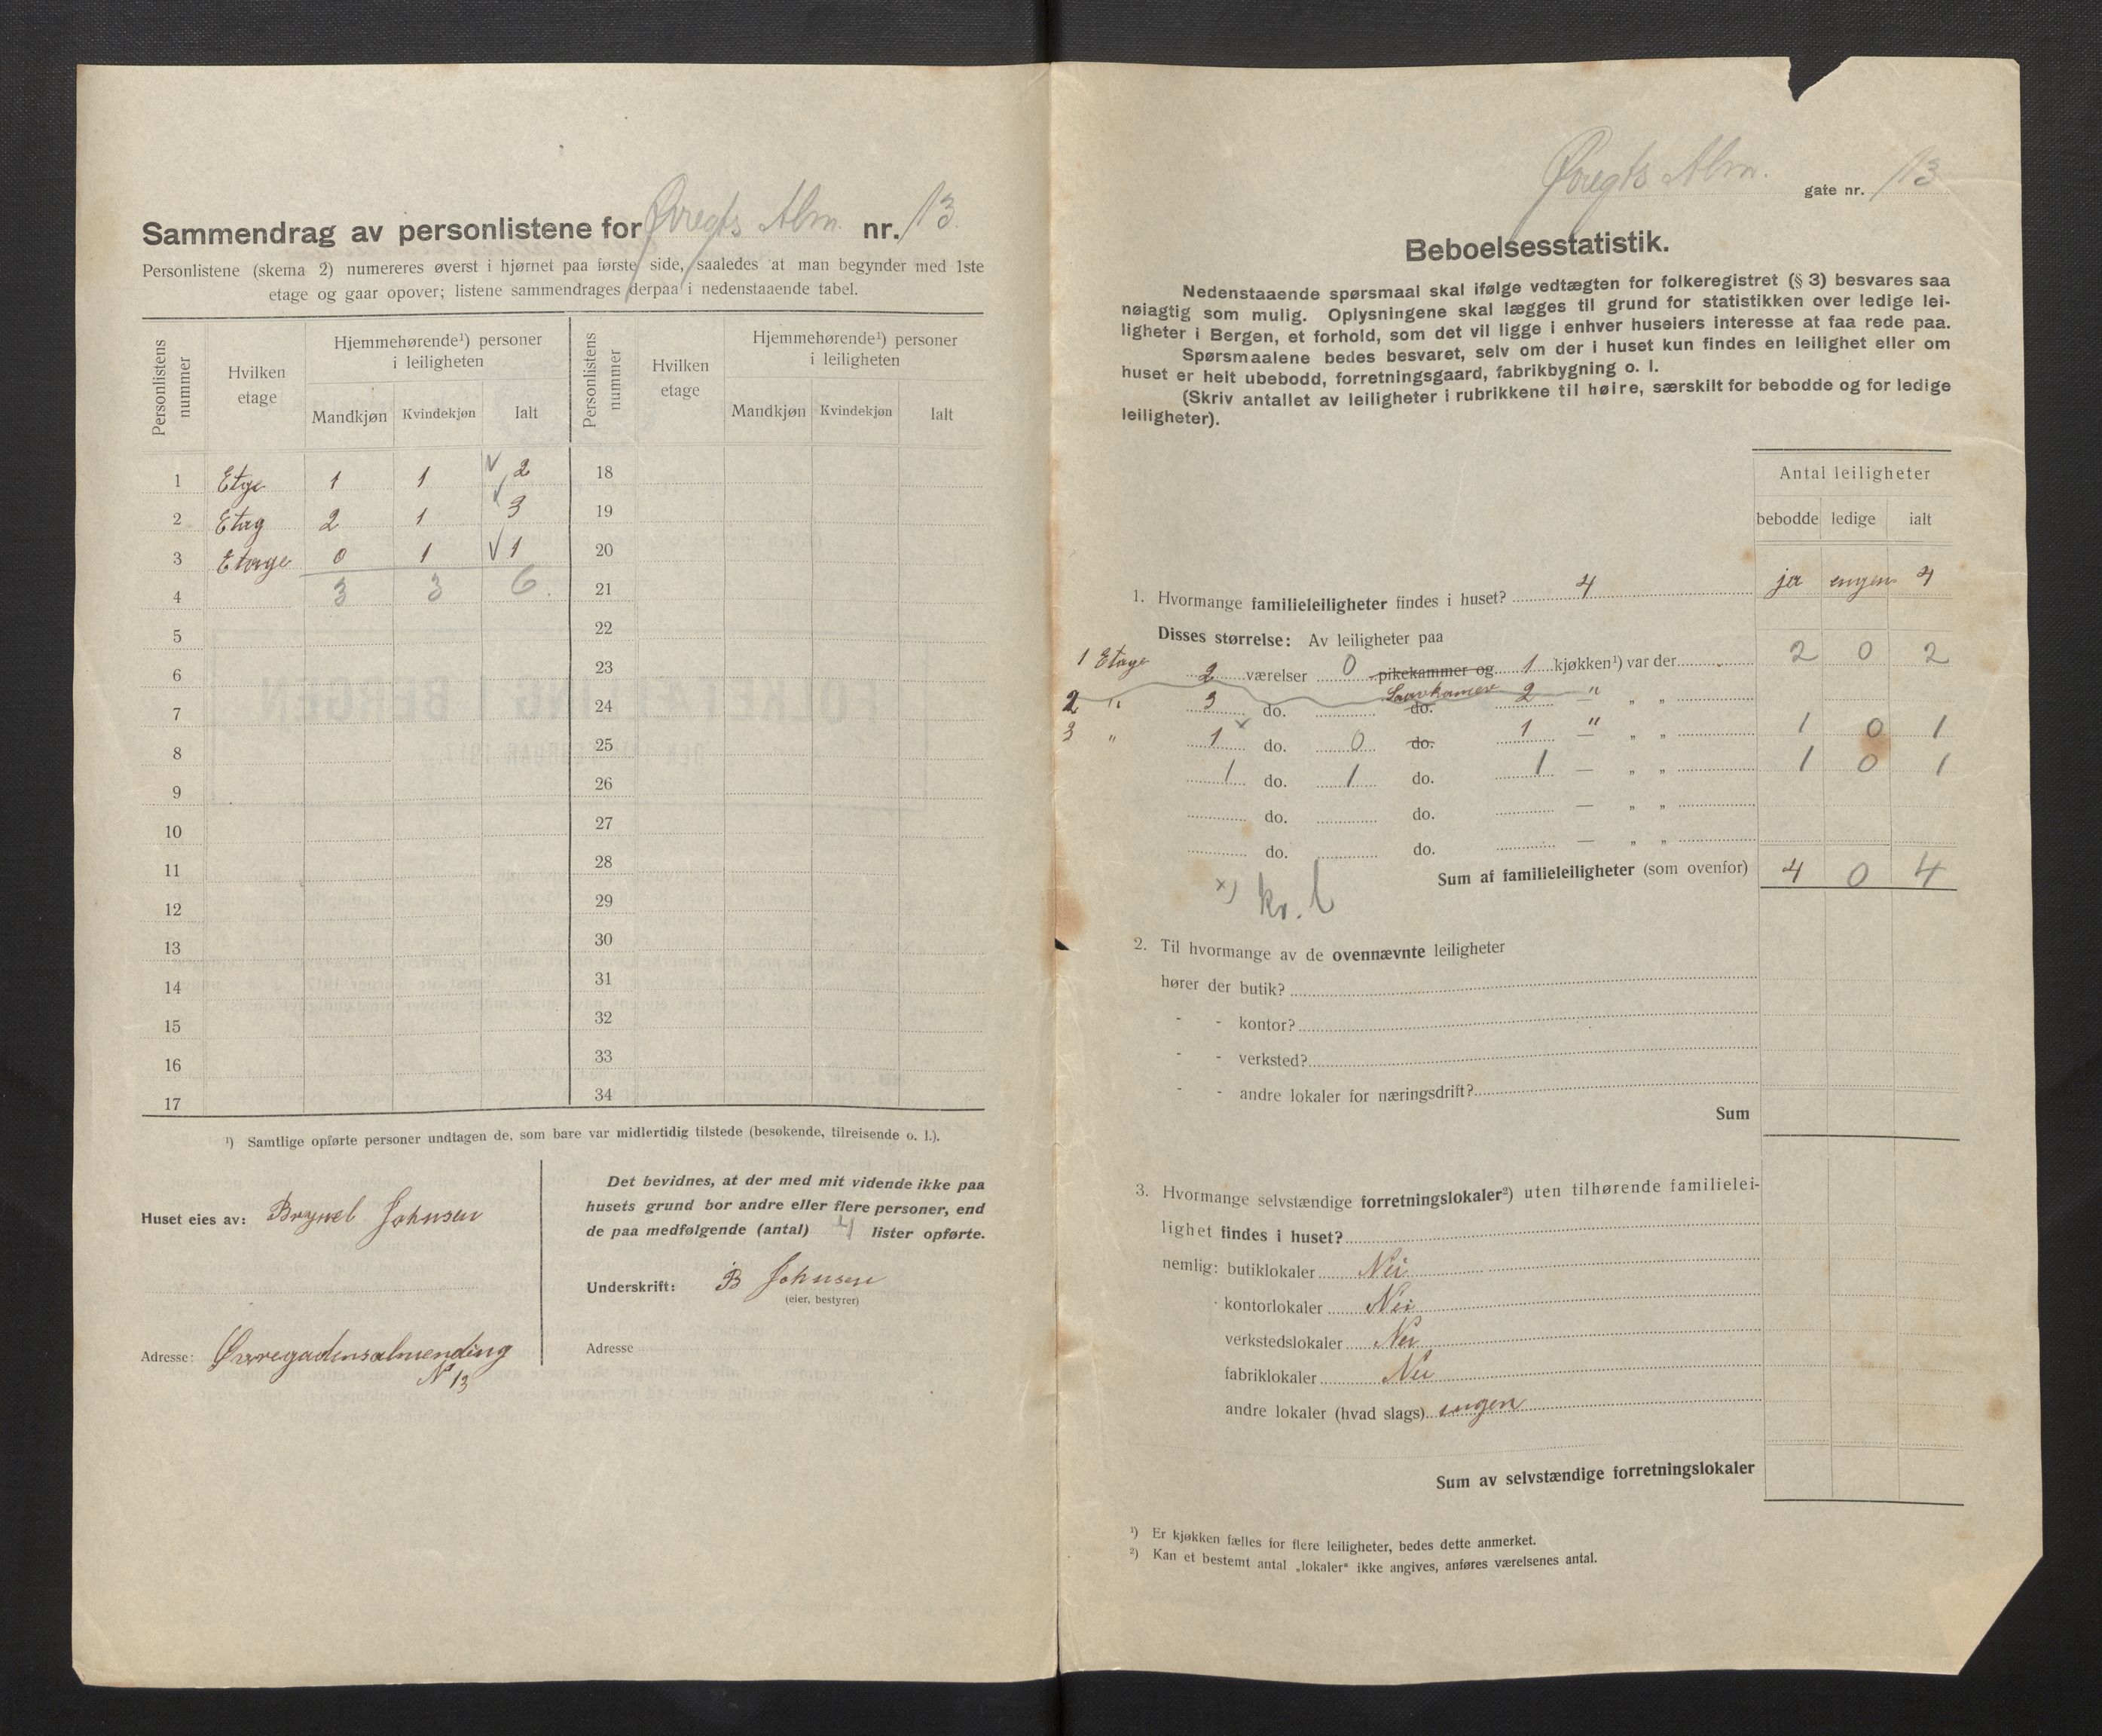 Sammendrag av personlistene for Øvregts Alm. nr. 13.
Personlistene (skema 2) numereres øverst i hjørnet paa første side, saaledes at man begynder med 1ste
etage og gaar opover; listene sammendrages derpaa i nedenstaaende tabel.
Personlistens nummer
Hvilken etage
Hjemmehørende¹) personer i leiligheten
Mandkjøn Kvindekjøn Ialt
Personlistens nummer
Hvilken etage
Hjemmehørende¹) personer i leiligheten
Mandkjøn Kvindekjøn Ialt
1 Etge 1 1 √ 2 18
2 Etag 2 1 √ 3 19
3 Etage 0 1 √ 1 20
4 3 3 6. 21
5 22
6 23
7 24
8 25
9 26
10 27
11 28
12 29
13 30
14 31
15 32
16 33
17 34
¹) Samtlige opførte personer undtagen de, som bare var midlertidig tilstede (besøkende, tilreisende o. l.).
Huset eies av: Johnsen
Adresse: Øvregadensalmending
N 13
Det bevidnes, at der med mit vidende ikke paa
husets grund bor andre eller flere personer, end
de paa medfølgende (antal) 4 lister opførte.
Underskrift: B Johnsen
(eier, bestyrer)
Adresse
Øvregts Alm. gate nr. 13
Beboelsesstatistik.
Nedenstaaende spørsmaal skal ifølge vedtægten for folkeregistret (§ 3) besvares saa
nøiagtig som mulig. Oplysningene skal lægges til grund for statistikken over ledige lei-
ligheter i Bergen, et forhold, som det vil ligge i enhver huseiers interesse at faa rede paa.
Spørsmaalene bedes besvaret, selv om der i huset kun findes en leilighet eller om
huset er helt ubebodd, forretningsgaard, fabrikbygning o. l.
(Skriv antallet av leiligheter i rubrikkene til høire, særskilt for bebodde og for ledige
leiligheter).
Antal leiligheter
bebodde ledige ialt
1. Hvormange familieleiligheter findes i huset? 4 ja engen 4
Disses størrelse: Av leiligheter paa
1 Etage 2 værelser 0 pikekammer og 1 kjøkken¹) var der 2 0 2
2 " 3 do. do. 2 — " " "
3 " 1 x do. 0 do. 1 — " " " 1 0 1
1 do. 1 do. 1 — " " 1 0 1
do. do. — " "
do. do. — " "
Sum af familieleiligheter (som ovenfor) 4 0 4
x) kv. l
2. Til hvormange av de ovennævnte leiligheter
hører der butik?
- - kontor?
- - verksted?
- - andre lokaler for næringsdrift?
Sum
3. Hvormange selvstændige forretningslokaler²) uten tilhørende familielei-
lighet findes i huset?
nemlig: butiklokaler Nei
kontorlokaler Nei
verkstedslokaler Nei
fabriklokaler Nei
andre lokaler (hvad slags) engen
Sum av selvstændige forretningslokaler
¹) Er kjøkken fælles for flere leiligheter, bedes dette anmerket.
²) Kan et bestemt antal „lokaler“ ikke angives, anføres værelsenes antal.